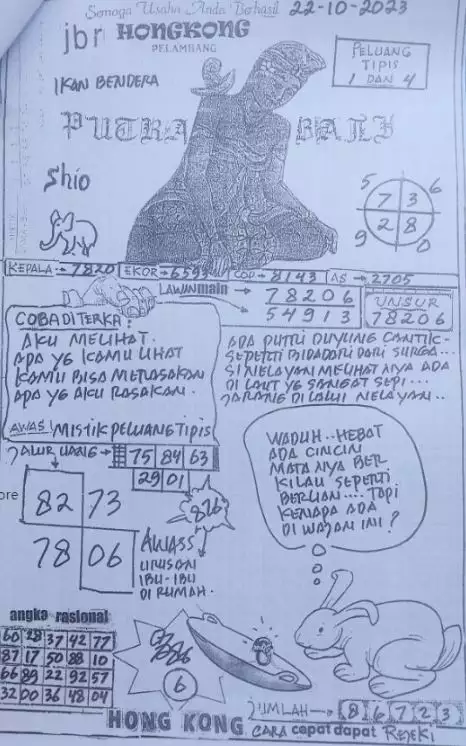 Semoga Usaha Anda Berhasil 22-10-2023
jbr HONGKONG
PELAMBANG
PELUANG
TIPIS
1 DAN 4
IKAN BENDERA
PUTRA BALI
Shio
5 6
7 3
2 8
9 0
KEPALA → 7820 EKOR → 6593 COP → 8143 AS → 2705
LAWAN main → 78206
54913
UNSUR
78206
COBA DI TERKA :
AKU MELIHAT.
APA YG KAMU LIHAT
KAMU BISA MERASAKAN
APA YG AKU RASAKAN.
AWAS! MISTIK PELUANG TIPIS
ADA PUTRI DUYUNG CANTIK-
SEPERTI BIDADARI DARI SURGA...
SI NELAYAN MELIHAT NYA ADA
DI LAUT YG SANGAT SEPI...
JARANG DI LALUI NELAYAN..
JALUR UANG → 75 84 63
29 01
82 73
78 06
876
AWASS
URUSAN
IBU-IBU
DI RUMAH.
WADUH.. HEBAT
ADA CINCIN
MATA NYA BER
KILAU SEPERTI
BERLIAN.... TAPI
KENAPA ADA
DI WAJAN INI ?
angka rasional
60 28 37 42 77
87 17 50 88 10
66 89 22 92 57
32 00 36 48 04
6
JUMLAH → 8 6 7 2 3
HONG KONG CARA cepat dapat REJEKI